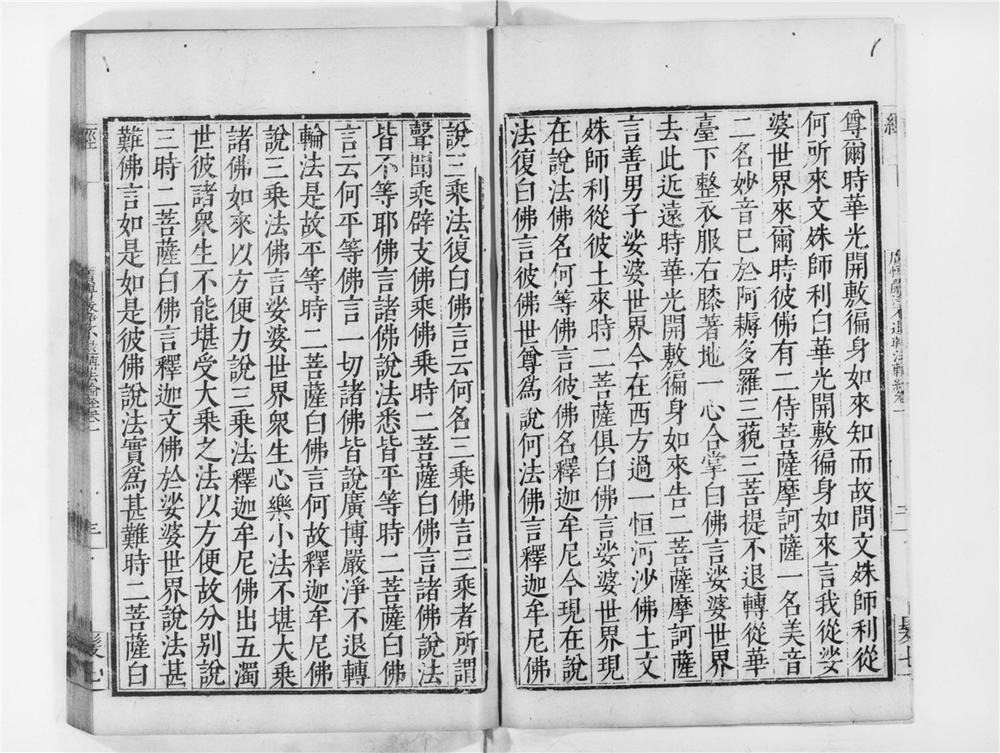 尊爾時華光開敷徧身如來知而故問文殊師利從
何所來文殊師利白華光開敷徧身如來言我從娑
婆世界來爾時彼佛有二侍菩薩摩訶薩一名美音
二名妙音已於阿耨多羅三藐三菩提不退轉從華
臺下整衣服右膝著地一心合掌白佛言娑婆世界
去此近遠時華光開敷徧身如來告二菩薩摩訶薩
言善男子娑婆世界今在西方過一恒河沙佛土文
殊師利從彼土來時二菩薩俱白佛言娑婆世界現
在說法佛名何等佛言彼佛名釋迦牟尼今現在說
法復白佛言彼佛世尊為說何法佛言釋迦牟尼佛
說三乘法復白佛言云何名三乘佛言三乘者所謂
聲聞乘辟支佛乘佛乘時二菩薩白佛言諸佛說法
皆不等耶佛言諸佛說法悉皆平等時二菩薩白佛
言云何平等佛言一切諸佛皆說廣博嚴淨不退轉
輪法是故平等時二菩薩白佛言何故釋迦牟尼佛
說三乘法佛言娑婆世界衆生心樂小法不堪大乘
諸佛如來以方便力說三乘法釋迦牟尼佛出五濁
世彼諸衆生不能堪受大乘之法以方便故分別說
三時二菩薩白佛言釋迦文佛於娑婆世界說法甚
難佛言如是如是彼佛說法實為甚難時二菩薩白
經
三
髮七